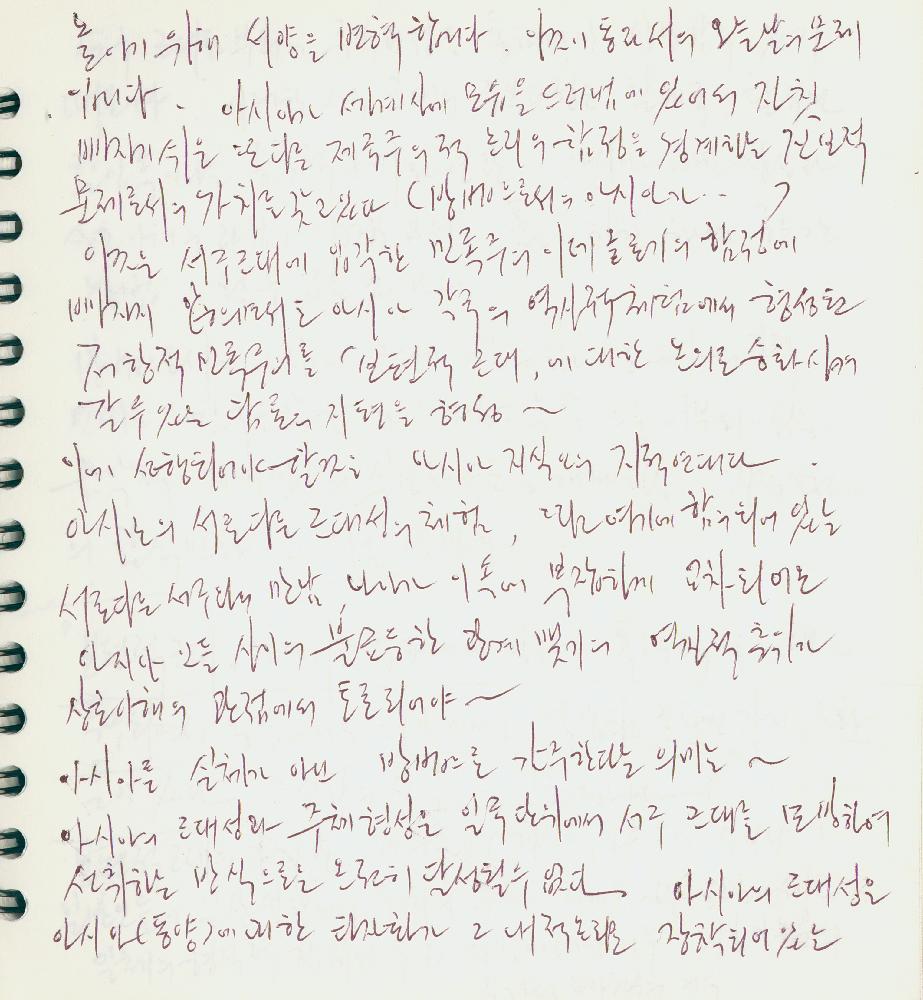 놀아기 위해 서양을 변혁합니다. 이것이 동라서의 오늘날의 문제
입니다. 아시아가 세계사에 모습을 드러냄에 있어서 자칫
빠지기 쉬운 또다른 제국주의적 논리의 함정을 경계하는 진보적
문제로서의 가치를 갖고있다 (방법으로서의 아시아가..
이것은 서구근대에 입각한 민족주의 이데올로기의 함정에
빠지지 않으면서도 아시아 각국의 역사적 체험에서 형성된
저항적 민족주의를 '보편적 근대'에 대한 논의로 승화시켜
갈 수 있는 담론의 지평을 형성 ~
이에 선행되어야 할 것은 아시아 지식인의 지적연대다.
아시아의 서로다른 근대성의 체험, 그리고 여기에 함의되어 있는
서로다른 서구와의 만남, 나아가 이 속에 복잡하게 교차되어온
아시아 인들 사이의 불균등한 관계 맺기의 역사적 층위가
상호이해의 관점에서 토론되어야 ~
아시아를 실체가 아닌 방법으로 간주한다는 의미는 ~
아시아의 근대성과 주체형성은 일국단위에서 서구 근대를 모방하여
선취하는 방식으로는 온전히 달성될 수 없다. 아시아의 근대성은
아시아(동양)에 대한 타자화가 그 내적논리로 장착되어 있는